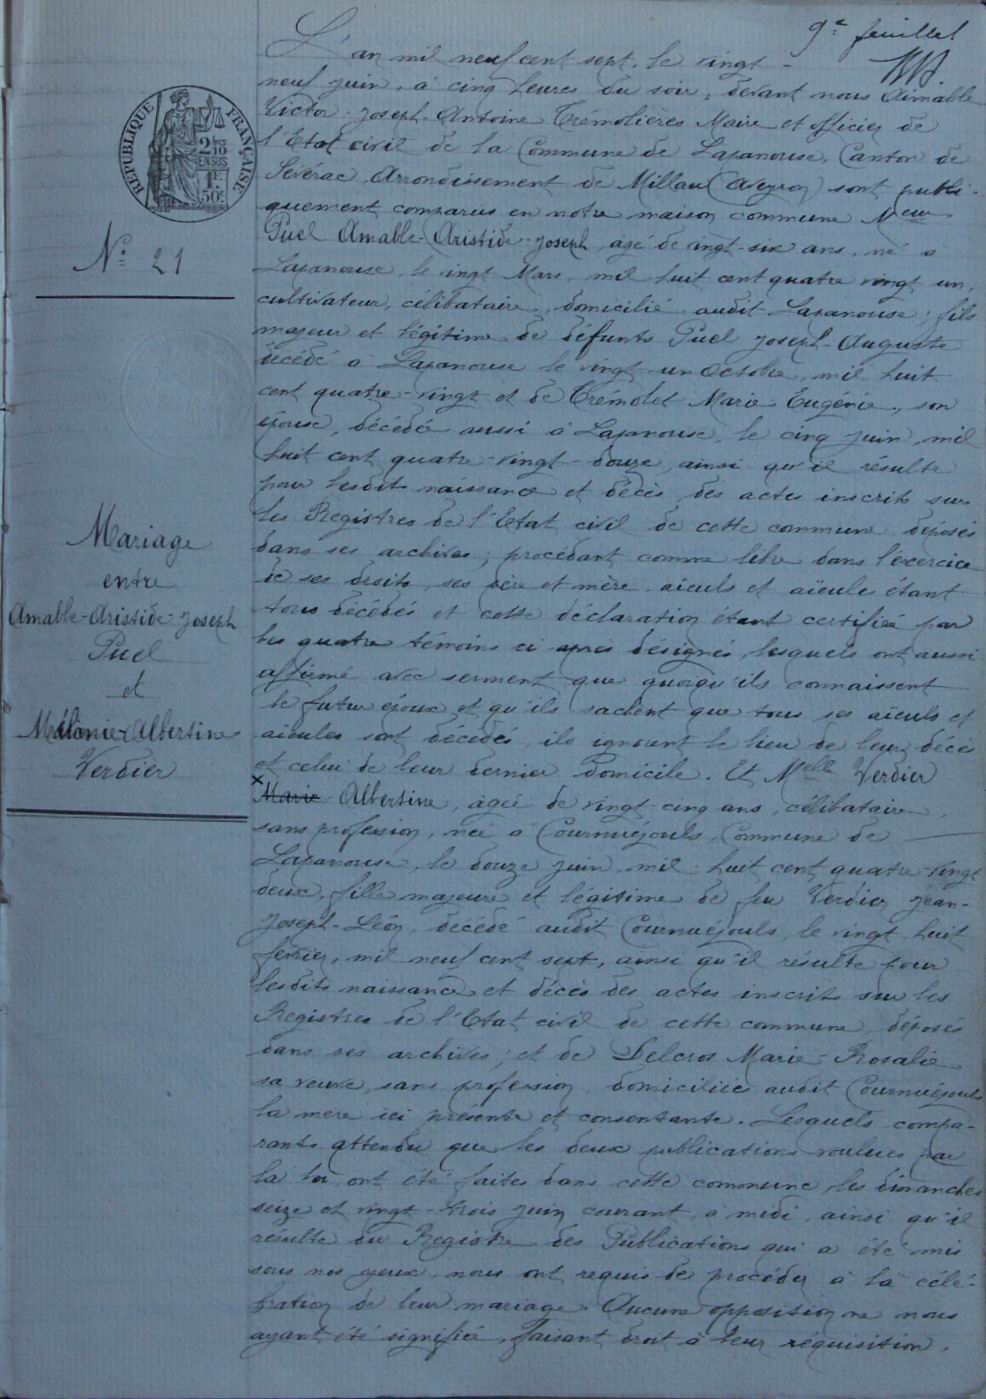 9.e feuillet
L'an mil neuf cent sept, le vingt-
neuf juin, à cinq heures du soir, devant nous Aimable
Victor-Joseph-Antoine Trémolières Maire et officier de
l'Etat civil de la Commune de Lapanouse, Canton de
Sévérac, Arrondissement de Millau (Aveyron) sont publi-
quement comparus en notre maison commune Meur
Puel Amable-Aristide-Joseph, agé de vingt-six ans, né à
Lapanouse, le vingt Mars, mil huit cent quatre vingt un,
cultivateur, célibataire, domicilié audit Lapanouse; fils
majeur et légitime de défunts Puel Joseph-Auguste
décédé à Lapanouse le vingt-un Octobre, mil huit
cent quatre-vingt et de Trémolet Marie-Eugénie, son
épouse, décédée aussi à Lapanouse, le cinq juin, mil
huit cent quatre-vingt-douze, ainsi qu'il résulte
pour lesdits naissance et décès, des actes inscrits sur
les Registres de l'Etat civil de cette commune déposés
dans ses archives; procédant comme libre dans l'exercice
de ses droits, ses père et mère, aieuls et aïeule étant
tous décédés et cette déclaration étant certifiée par
les quatre témoins ci-après désignés, lesquels ont aussi
affirmé avec serment que quoiqu'ils connaissent
le futur époux et qu'ils sachent que tous ses aïeuls et
aieules sont décédés, ils ignorent le lieu de leur décès
et celui de leur dernier domicile. Et Melle Verdier
x Marie Albertine, agée de vingt-cinq ans, célibataire,
sans profession, née à Cournuéjouls, Commune de
Lapanouse, le douze juin, mil-huit cent quatre-vingt
deux, fille majeure et légitime de feu Verdier Jean-
Joseph-Léon, décédé audit Cournuéjouls, le vingt-huit
février, mil neuf cent sept, ainsi qu'il résulte pour
lesdits naissance et décès des actes inscrits sur les
Registres de l'Etat civil de cette commune, déposés
dans ses archives; et de Delcros Marie-Rosalie
sa veuve, sans profession, domiciliée audit Cournuéjouls
la mère ici présente et consentante. Lesquels compa-
rants attendu que les deux publications voulues par
la loi, ont été faites dans cette commune, les dimanches
seize et vingt-trois juin courant, à midi, ainsi qu'il
résulte du Registre des Publications qui a été mis
sous nos yeux, nous ont requis de procéder à la célé-
bration de leur mariage. Aucune opposition ne nous
ayant été signifiée, faisant droit à leur réquisition,
RÉPUBLIQUE FRANÇAISE
2/10
EN SUS
1F
50c
No 21
Mariage
entre
Amable-Aristide-Joseph
Puel
et
Mélanie Albertine
Verdier